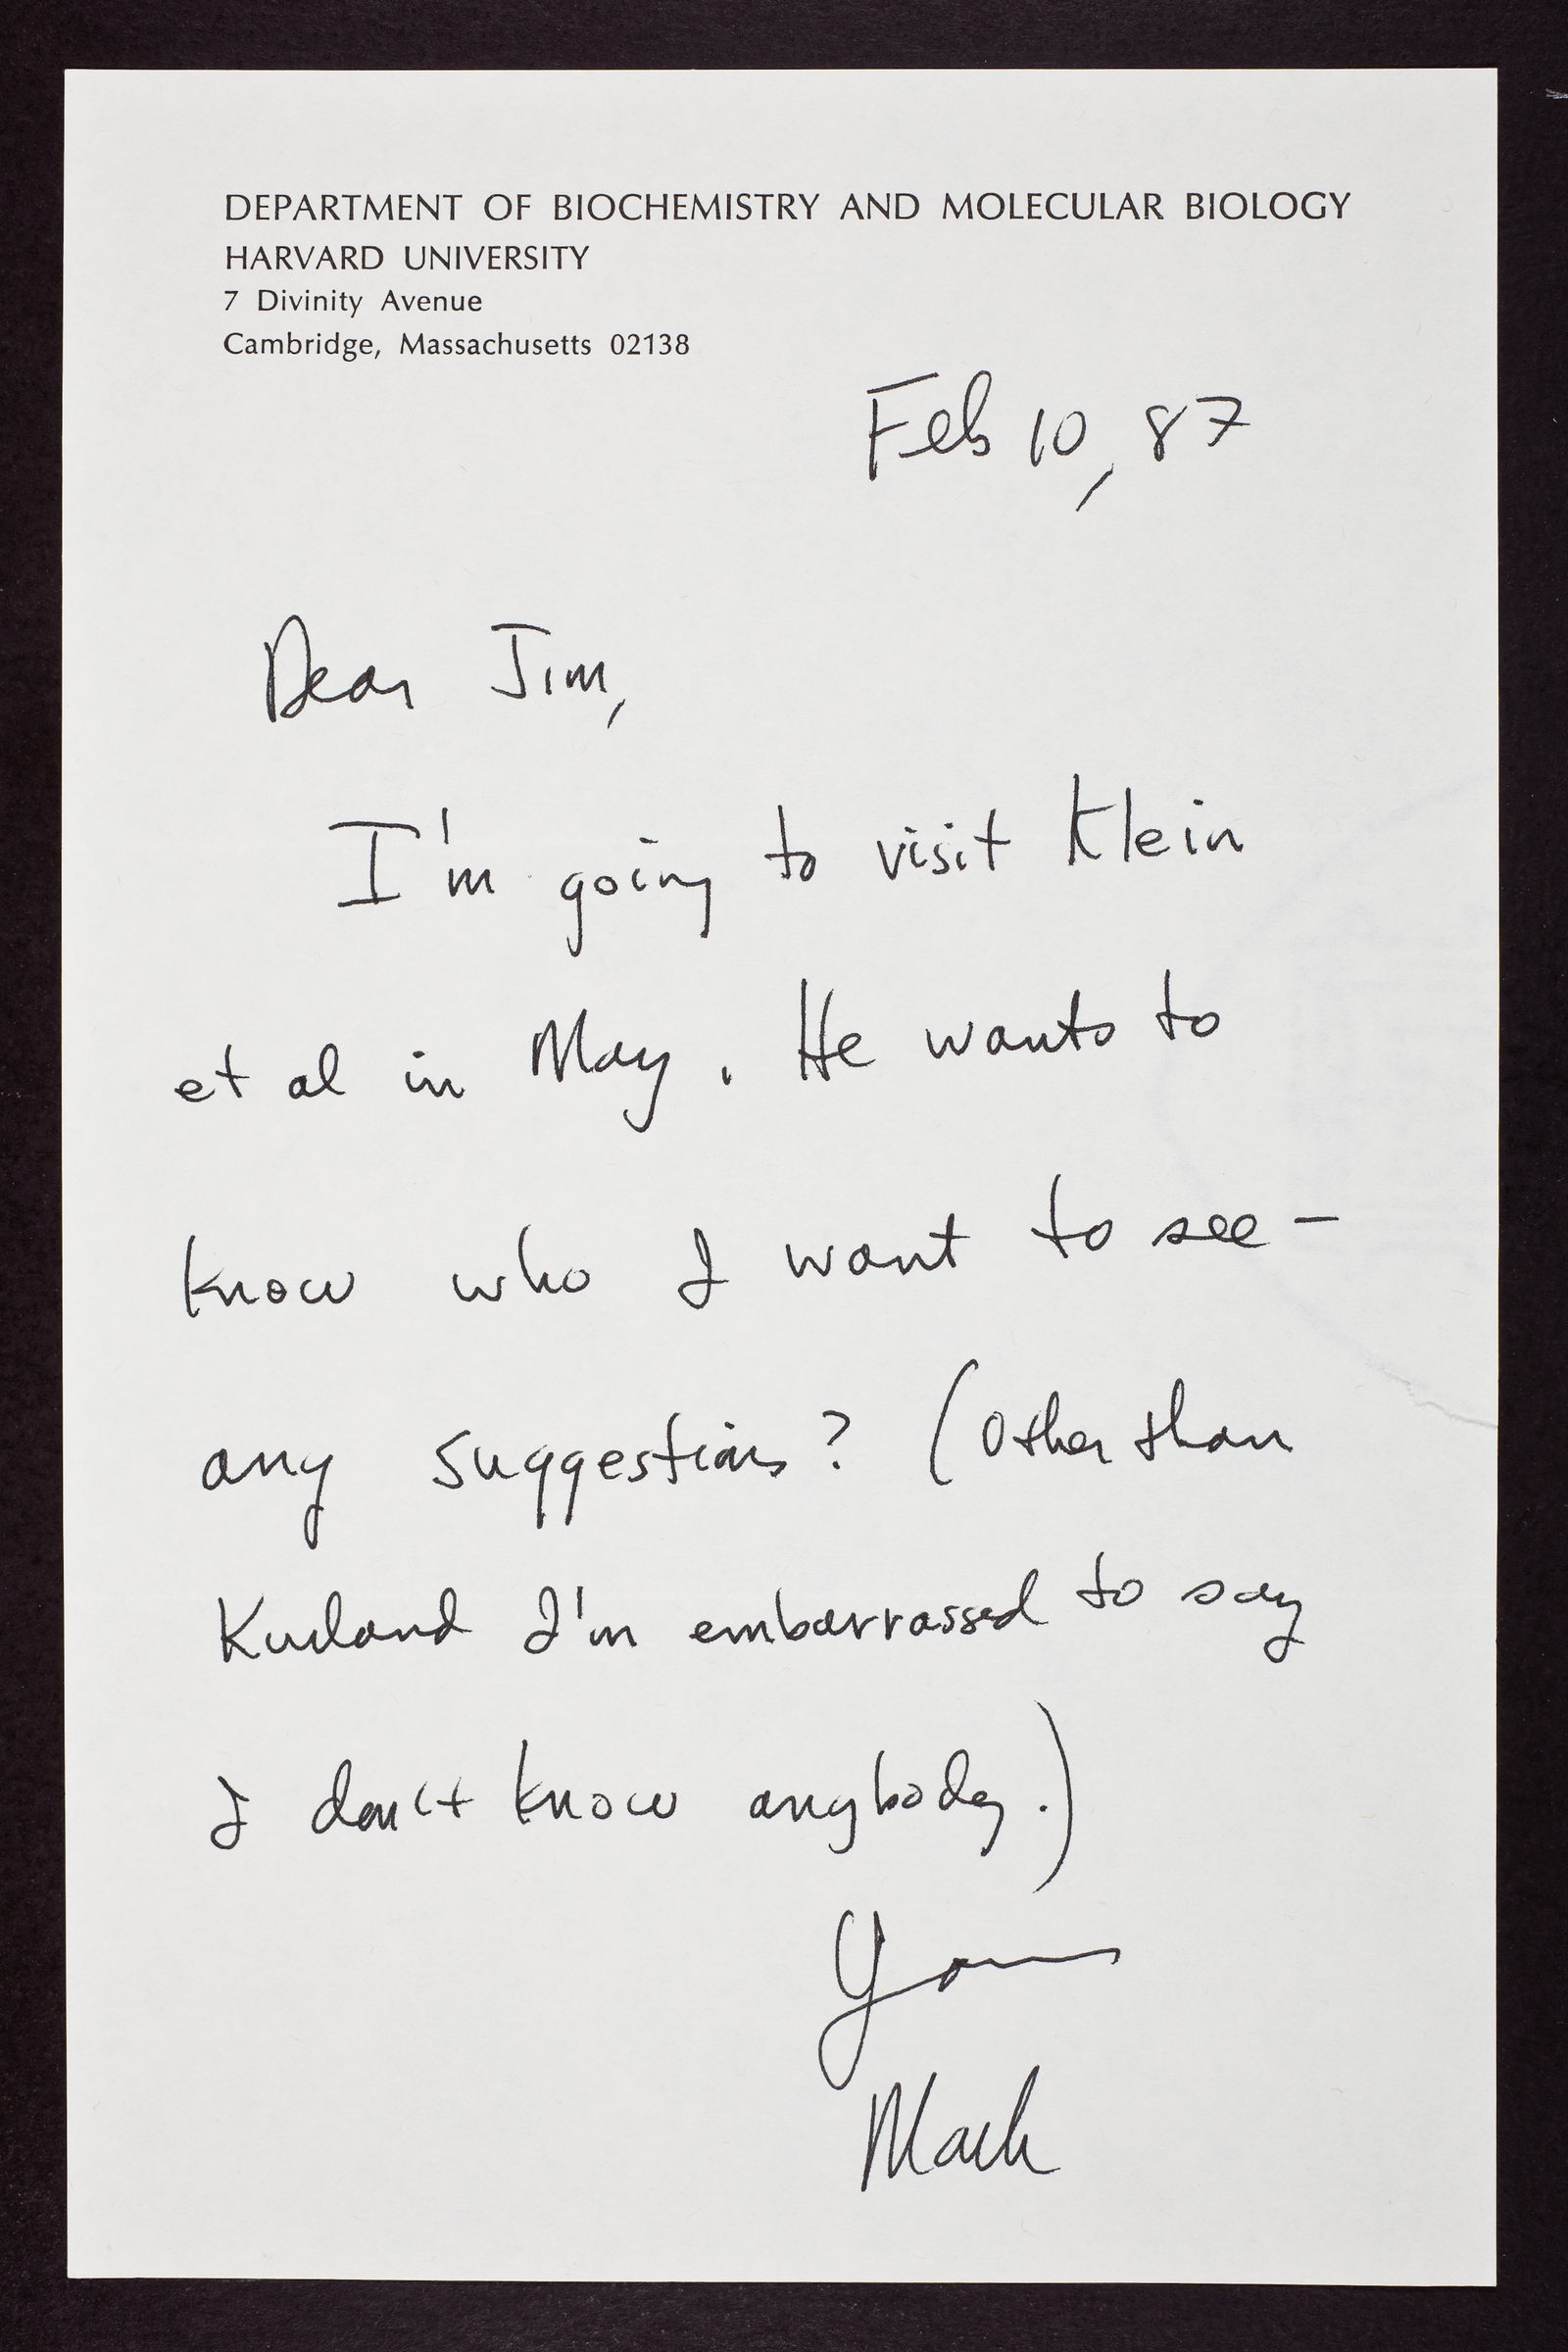 DEPARTMENT OF BIOCHEMISTRY AND MOLECULAR BIOLOGY
HARVARD UNIVERSITY
7 Divinity Avenue
Cambridge, Massachusetts 02138
Feb 10, 87
Dear Jim,
I'm going to visit Klein
et al in May. He wants to
know who I want to see -
any suggestions? (Other than
Kurland I'm embarrassed to say
I don't know anybody.)
Yours
Mark